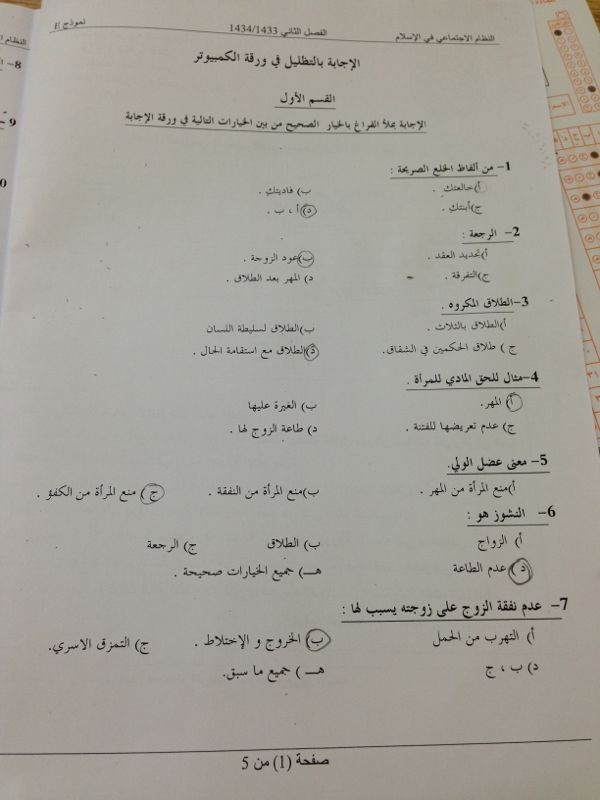 النظام الاجتماعي في الإسلام الفصل الثاني 1434/1433 نموذج E
الإجابة بالتظليل في ورقة الكمبيوتر
القسم الأول
الإجابة بملأ الفراغ بالخيار الصحيح من بين الخيارات التالية في ورقة الإجابة
1- من ألفاظ الخلع الصريحة :
أ)خالعتك . ب) فاديتك .
ج)أبنتك . د) أ ، ب .
2- الرجعة :
أ)تجديد العقد . ب)عود الزوجة .
ج)التفرقة . د) المهر بعد الطلاق .
3-الطلاق المكروه .
أ)الطلاق بالثلاث . ب)الطلاق لسليطة اللسان
ج ) طلاق الحكمين في الشقاق. د)الطلاق مع استقامة الحال .
4-مثال للحق المادي للمرأة .
أ) المهر. ب) الغيرة عليها
ج) عدم تعريضها للفتنة . د) طاعة الزوج لها .
5- معنى عضل الولي.
أ)منع المرأة من المهر . ب)منع المرأة من النفقة . ج) منع المرأة من الكفؤ .
6- النشوز هو :
أ) الزواج ب) الطلاق ج) الرجعة
د) عدم الطاعة هـ) جميع الخيارات صحيحة .
7- عدم نفقة الزوج على زوجته يسبب لها :
أ) التهرب من الحمل ب) الخروج و الإختلاط . ج) التمزق الاسري.
د) ب ، ج هـ) جميع ما سبق.
صفحة (1) من 5
النظام
8-
9
0